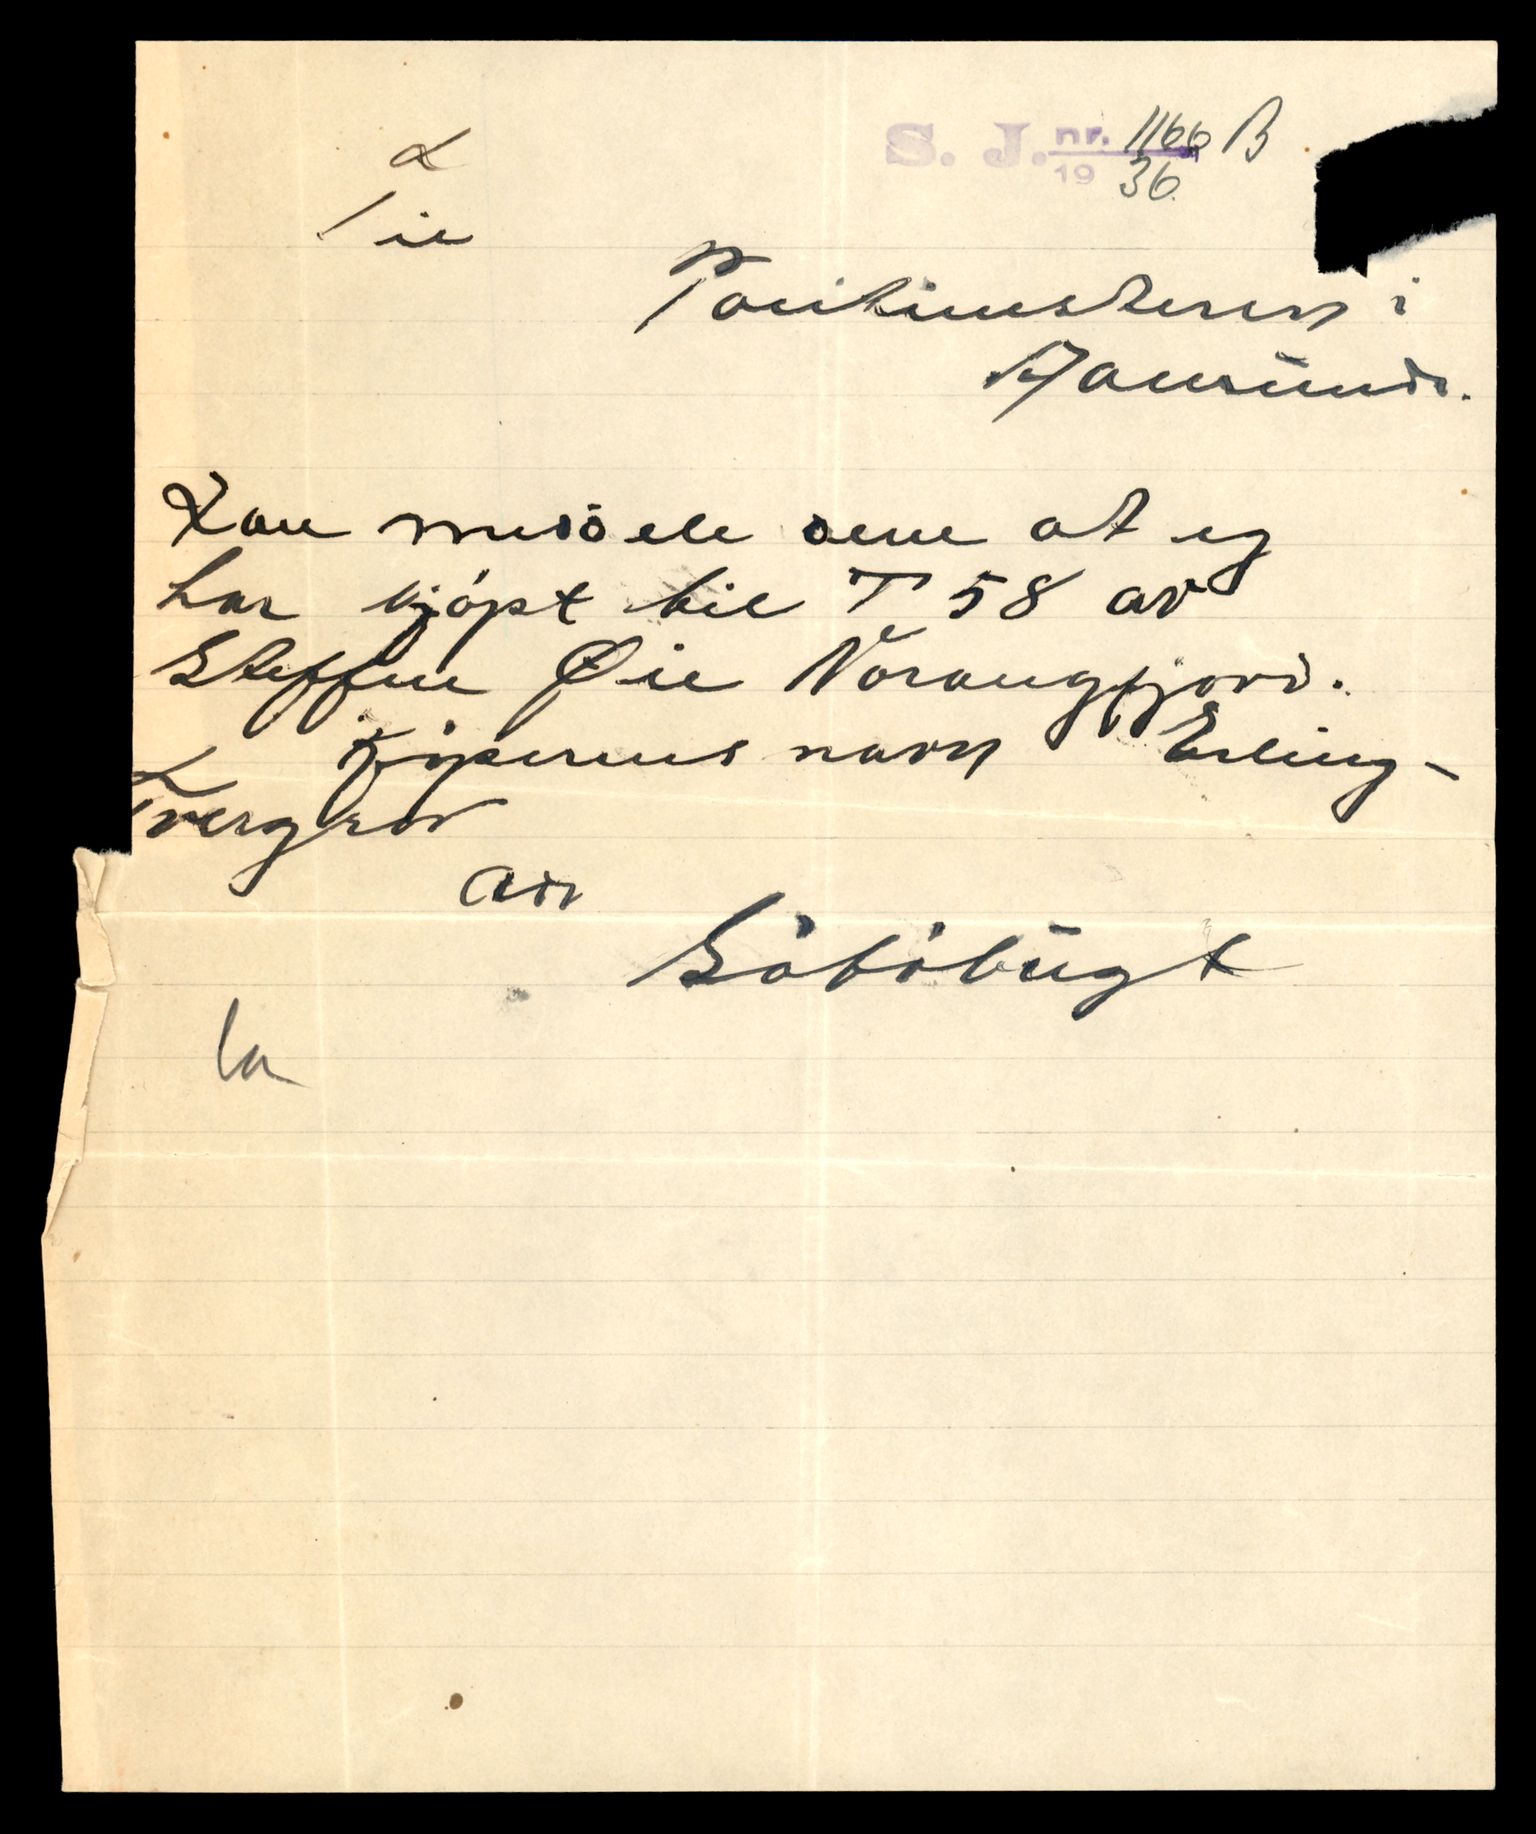 S. J. nr. 1166 B
19 36.
Til
Politimesteren i
Aalesund.
Kan meddele dem at eg
har kjøpt bil T 58 av
Steffen Øie Norangfjord.
Kjøperens navn Erling
Tvergrov
adr
Säbøbugt